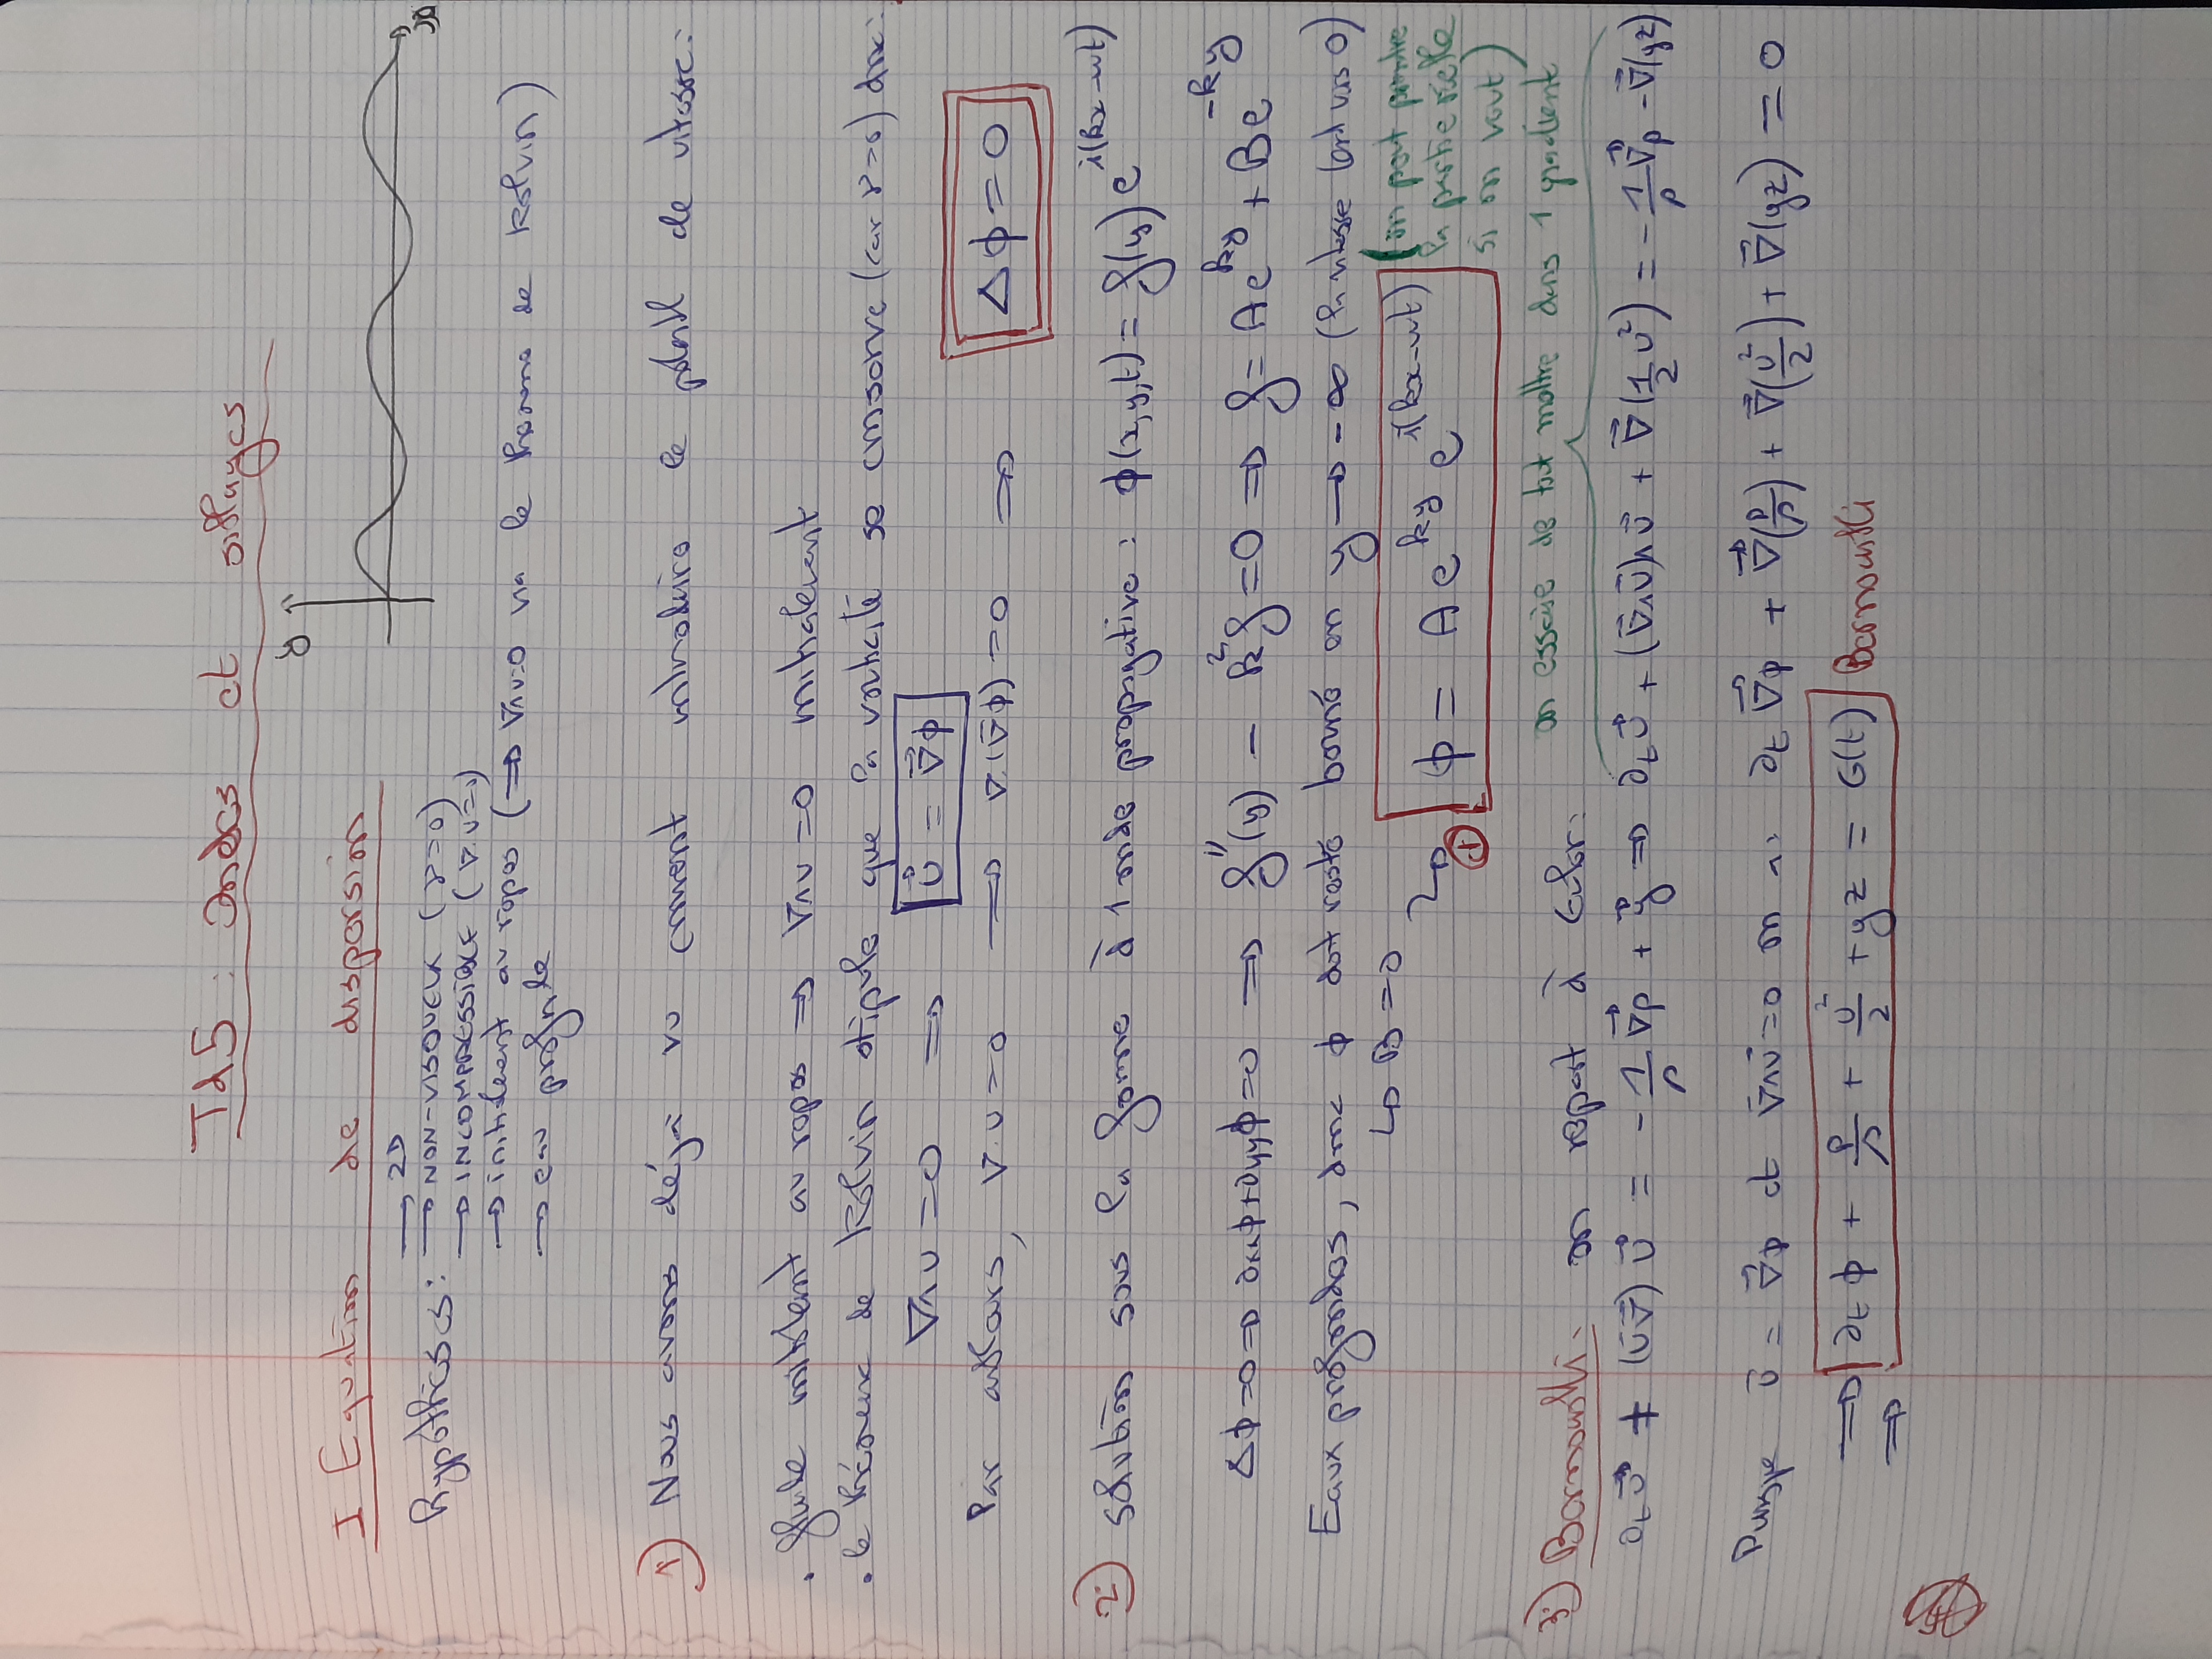 Td5 : Ondes et sillages
y
I Equation de dispersion
x
Hypothèses : → 2D
→ NON-VISQUEUX (ν=0)
→ INCOMPRESSIBLE (∇.υ=0)
→ initialement au repos (⇒ ∇∧υ=0 via le théorème de Kelvin)
→ eau profonde
1) Nous avons déjà vu comment introduire le potentiel de vitesse :
. fluide initialement au repos ⇒ ∇∧υ = 0 initialement
. le théorème de Kelvin stipule que la vorticité se conserve (car ν=0) donc :
∇∧υ = 0 ⇒ υ⃗ = ∇⃗ϕ
Par ailleurs, ∇.υ=0 ⇒ ∇.(∇⃗ϕ) = 0 ⇒ Δϕ = 0
2) Solution sous la forme d'1 onde propagative : ϕ(x,y,t) = f(y) e^{i(kx-ωt)}
Δϕ=0 ⇒ ∂xxϕ+∂yyϕ=0 ⇒ f''(y) - k²f = 0 ⇒ f = Ae^{ky} + Be^{-ky}
Eaux profondes, donc ϕ doit resté borné en y → -∞ (la vitesse tend vers 0)
↳ B = 0
ϕ = A e^{ky} e^{i(kx-ωt)} (on peut prendre
la partie réelle
si on veut)
on essaie de tout mettre dans 1 gradient
3) Bernoulli : on repart d'Euler :
∂t υ⃗ + (υ⃗.∇⃗) υ⃗ = - 1/ρ ∇⃗p + g⃗ ⇒ ∂t υ⃗ + (∇⃗∧υ⃗)∧υ⃗ + ∇⃗(1/2 υ²) = - 1/ρ ∇⃗p - ∇⃗(gz)
Puisque υ⃗ = ∇⃗ϕ et ∇⃗∧υ⃗ = 0 on a : ∂t ∇⃗ϕ + ∇⃗(p/ρ) + ∇⃗(υ²/2) + ∇⃗(gz) = 0
⇒ ∂t ϕ + p/ρ + υ²/2 + gz = G(t) Bernoulli
⇒